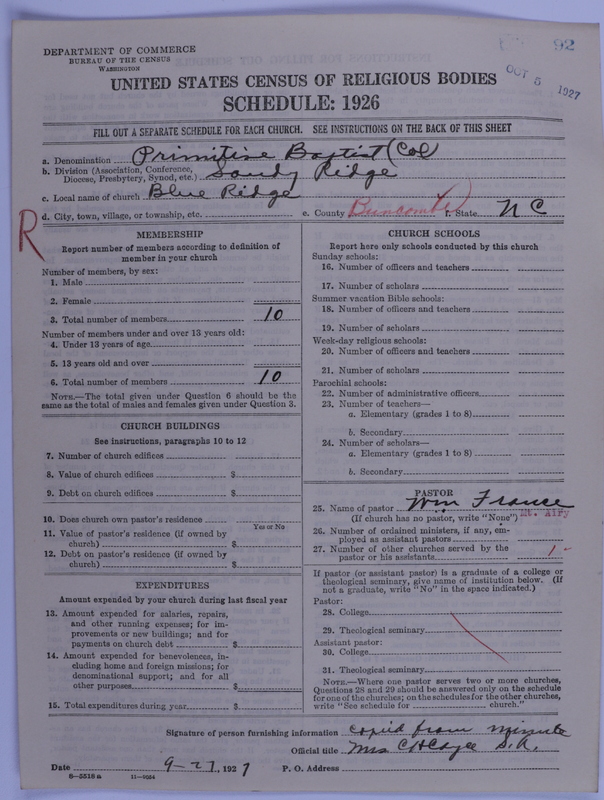 92
OCT 5 1927
DEPARTMENT OF COMMERCE
BUREAU OF THE CENSUS
WASHINGTON
UNITED STATES CENSUS OF RELIGIOUS BODIES
SCHEDULE: 1926
FILL OUT A SEPARATE SCHEDULE FOR EACH CHURCH. SEE INSTRUCTIONS ON THE BACK OF THIS SHEET
a. Denomination Primitive Baptist (Col
b. Division (Association, Conference, Diocese, Presbytery, Synod, etc.) Sandy Ridge
c. Local name of church Blue Ridge
d. City, town, village, or township, etc. e. County Buncombe f. State N C
R
MEMBERSHIP
Report number of members according to definition of
member in your church
Number of members, by sex:
1. Male
2. Female
3. Total number of members 10
Number of members under and over 13 years old:
4. Under 13 years of age
5. 13 years old and over
6. Total number of members 10
NOTE.—The total given under Question 6 should be the
same as the total of males and females given under Question 3.
CHURCH BUILDINGS
See instructions, paragraphs 10 to 12
7. Number of church edifices
8. Value of church edifices $
9. Debt on church edifices $
10. Does church own pastor's residence
Yes or No
11. Value of pastor's residence (if owned by
church) $
12. Debt on pastor's residence (if owned by
church) $
EXPENDITURES
Amount expended by your church during last fiscal year
13. Amount expended for salaries, repairs,
and other running expenses; for im-
provements or new buildings; and for
payments on church debt $
14. Amount expended for benevolences, in-
cluding home and foreign missions; for
denominational support; and for all
other purposes $
15. Total expenditures during year $
CHURCH SCHOOLS
Report here only schools conducted by this church
Sunday schools:
16. Number of officers and teachers
17. Number of scholars
Summer vacation Bible schools:
18. Number of officers and teachers
19. Number of scholars
Week-day religious schools:
20. Number of officers and teachers
21. Number of scholars
Parochial schools:
22. Number of administrative officers
23. Number of teachers—
a. Elementary (grades 1 to 8)
b. Secondary
24. Number of scholars—
a. Elementary (grades 1 to 8)
b. Secondary
PASTOR
25. Name of pastor Wm France
(If church has no pastor, write "None") Mt. Airy
26. Number of ordained ministers, if any, em-
ployed as assistant pastors
27. Number of other churches served by the
pastor or his assistants 1
If pastor (or assistant pastor) is a graduate of a college or
theological seminary, give name of institution below. (If
not a graduate, write "No" in the space indicated.)
Pastor:
28. College
29. Theological seminary
Assistant pastor:
30. College
31. Theological seminary
NOTE.—Where one pastor serves two or more churches,
Questions 28 and 29 should be answered only on the schedule
for one of the churches; on the schedules for the other churches,
write "See schedule for church."
Signature of person furnishing information Copied from minute
Official title Mrs C H Cayce S.A.
Date 9-27, 1927 P. O. Address
8—5518 a 11—9054